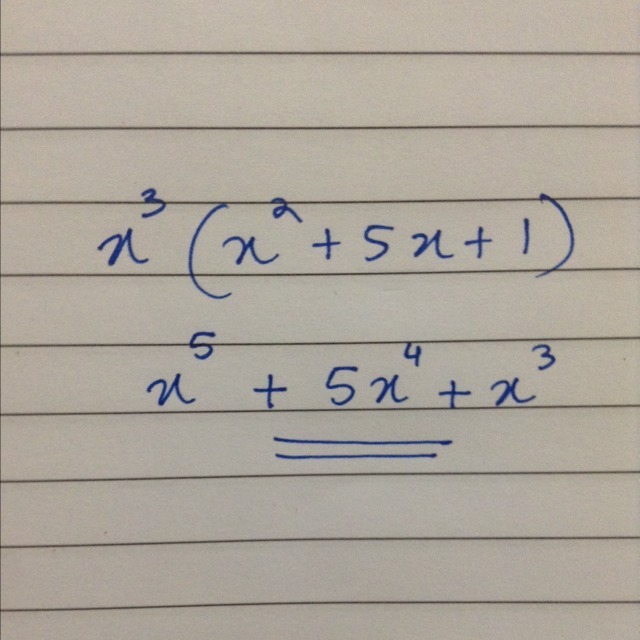 x³ (x² + 5x + 1)
x⁵ + 5x⁴ + x³